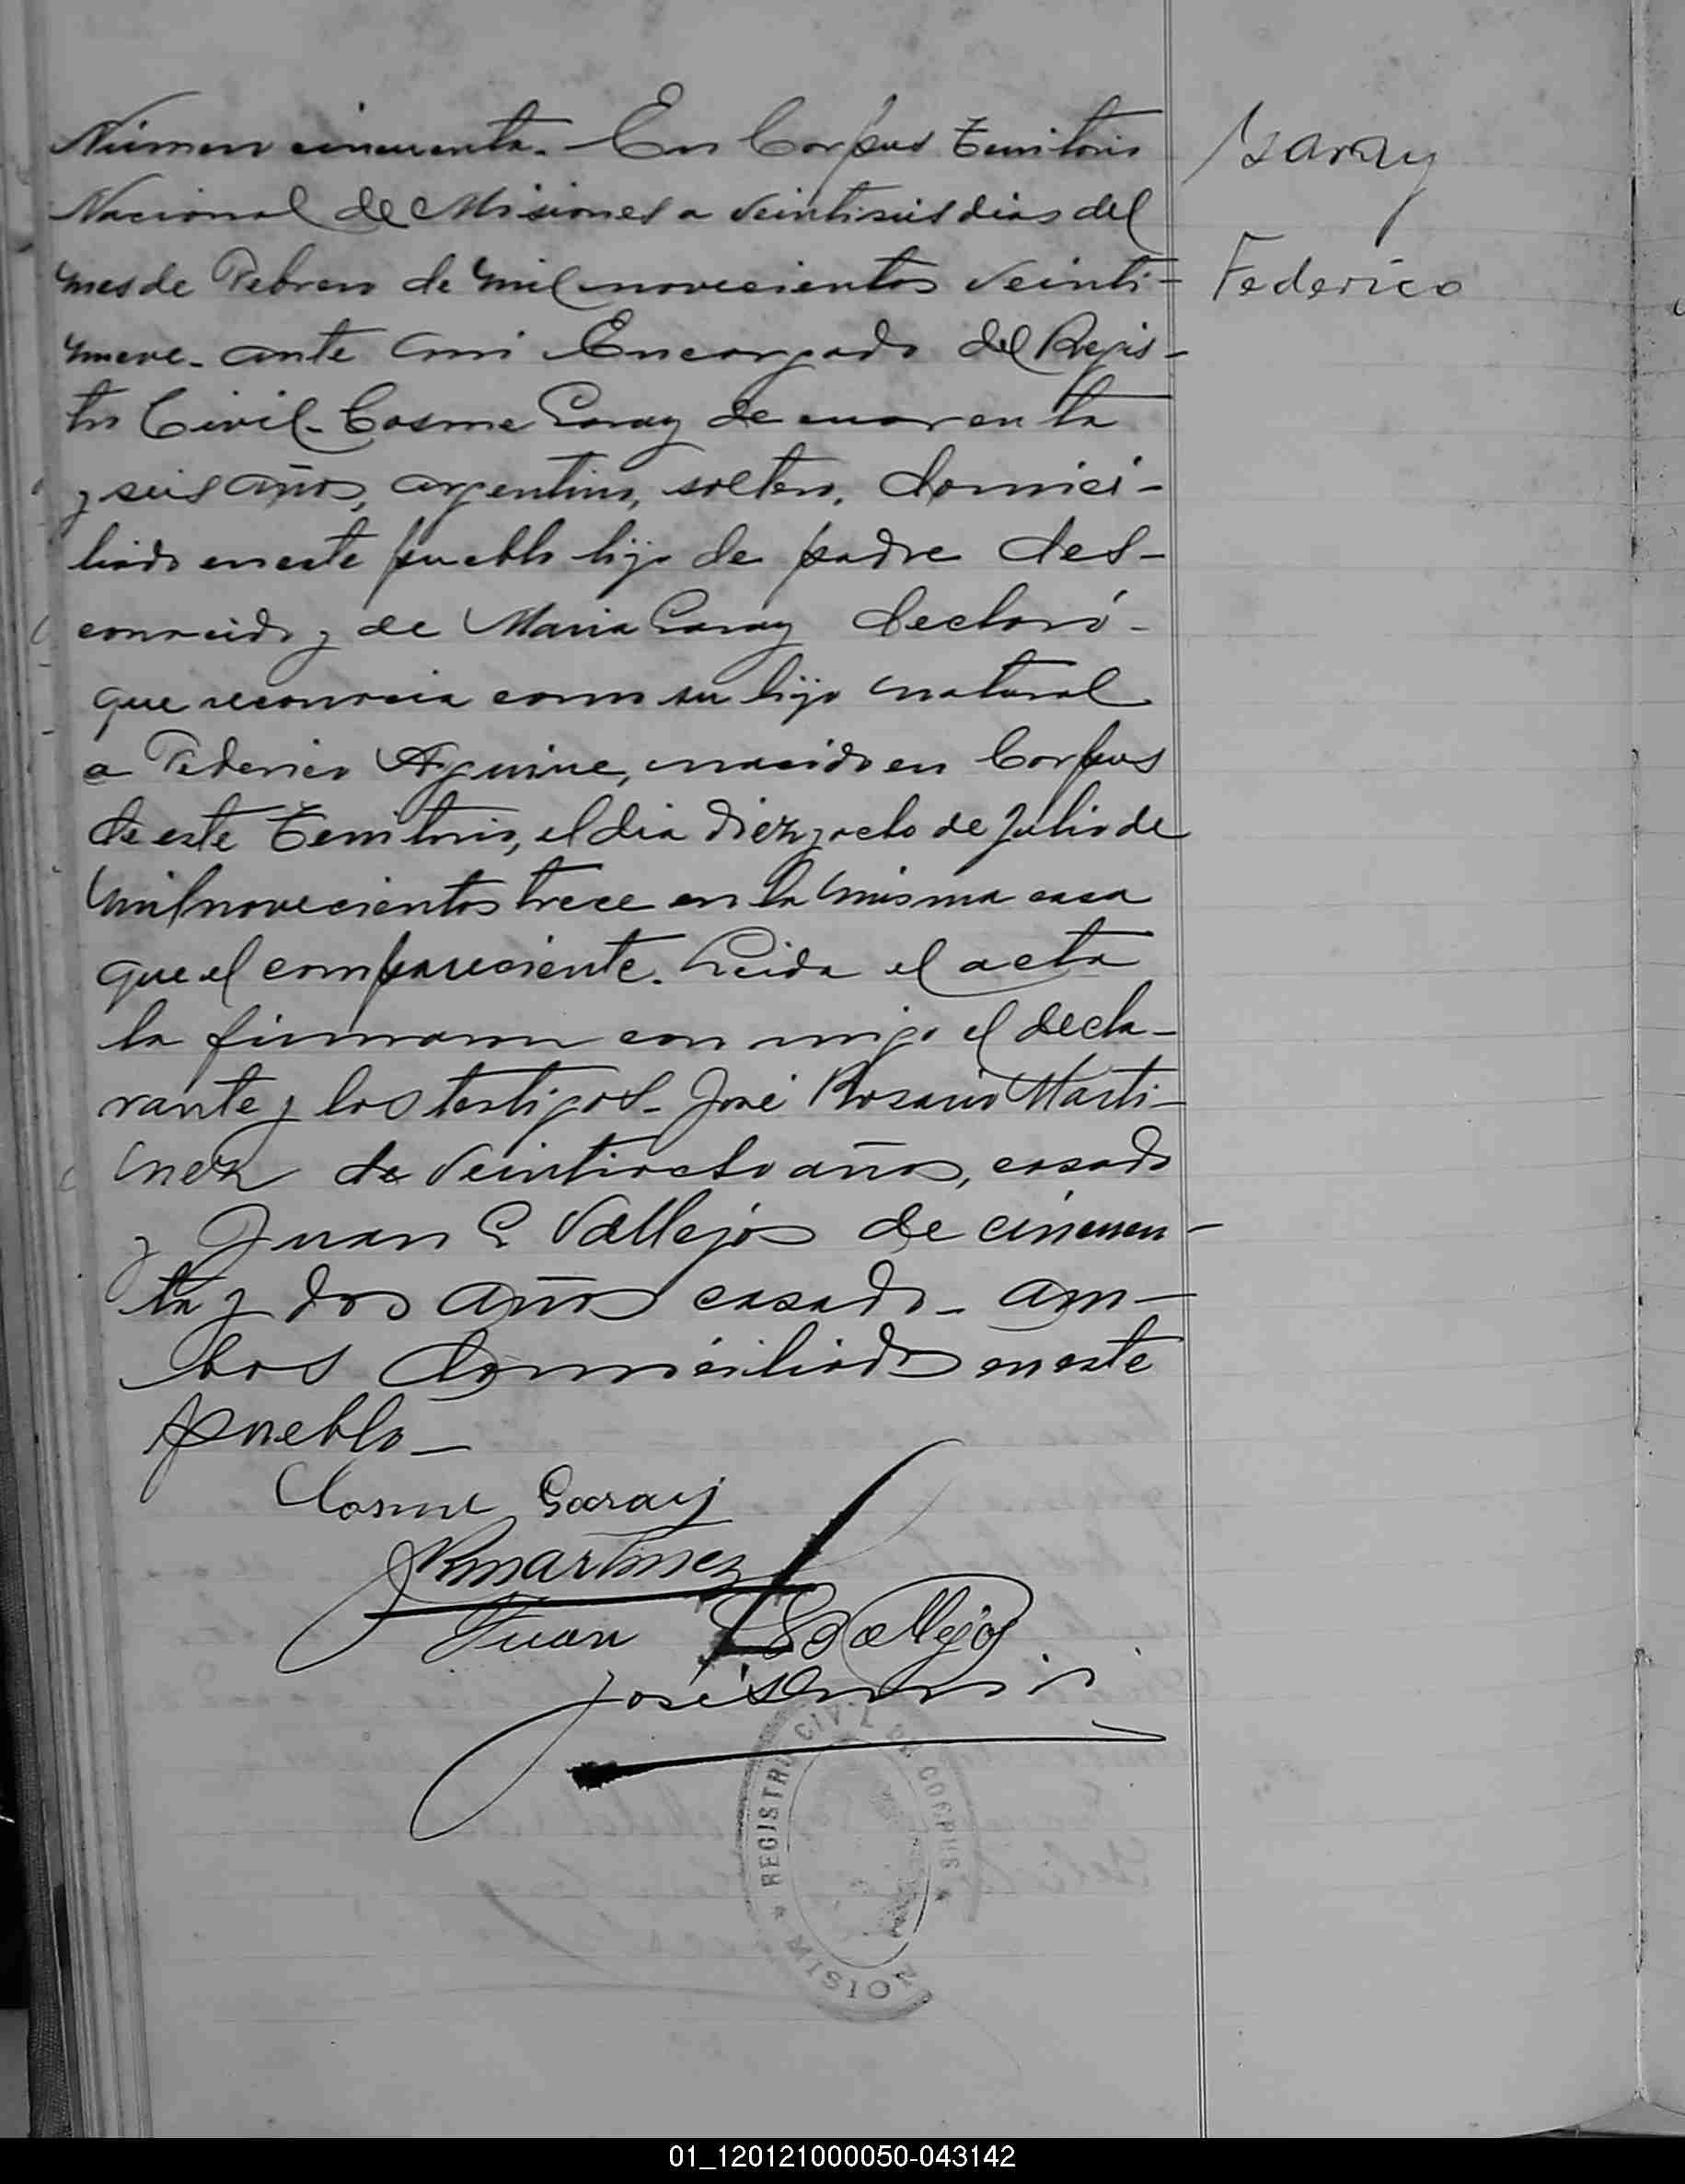 Número cincuenta. En Corpus Territorio
Nacional de Misiones a veintiseis dias del
mes de Febrero de mil novecientos veinti-
nueve. ante mi Encargado del Regis-
tro Civil. Cosme Garay de cuarenta
y seis años, argentino, soltero, domici-
liado en este pueblo hijo de padre des-
conocido y de Maria Garay declaró-
que reconocia como su hijo natural
a Federico Aguirre, nacido en Corpus
de este Territorio, el dia diez y ocho de Julio de
mil novecientos trece en la misma casa
que el compareciente. Leida el acta
la firmaron con migo el decla-
rante y los testigos- José Rosario Marti-
nez de veintiocho años, casado
y Juan E Vallejos de cincuen-
ta y dos años casado- am-
bos domiciliados en este
pueblo-
Garay
Federico
Cosme Garay
Rmartinez
Juan E Vallejos
José
REGISTRO CIVIL DE CORPUS
MISION
01_120121000050-043142